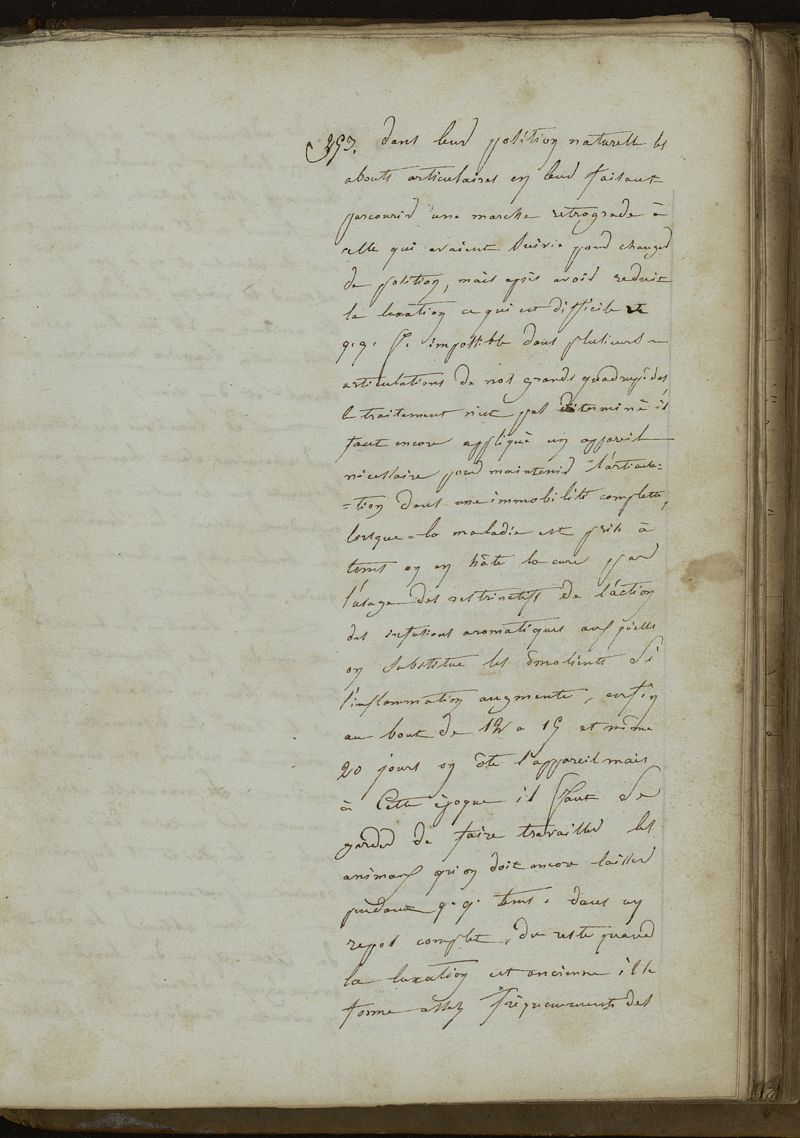 393. dans leur position naturelle les
abouts articulaires en leur faisant
parcourir une marche retrograde à
celle qui avaient suivie pour changer
de position, mais après avoir reduit
la luxation ce qui est difficile et
q.q. f. impossible dans plusieurs
articulations de nos grands quadrupèdes,
le traitement n'est pas déterminé il
faut encore appliqué un appareil
nécessaire pour maintenir l'articula=
=tion dans une immobilité complette,
lorsque la maladie est prise à
tems on en hâte la cure par
l'usage des restrinctifs de l'action
des infusions aromatiques auxquelle
on substitue les émolients si
l'inflammation augmente, enfin
au bout de 12 a 15 et même
20 jours on ôte l'appareil mais
à cette époque il faut se
garder de faire travailler les
animaux qu'on doit encore laisser
pendant q.q. tems dans un
repos complet, du reste quand
la luxation est ancienne il se
forme assez fréquemment des